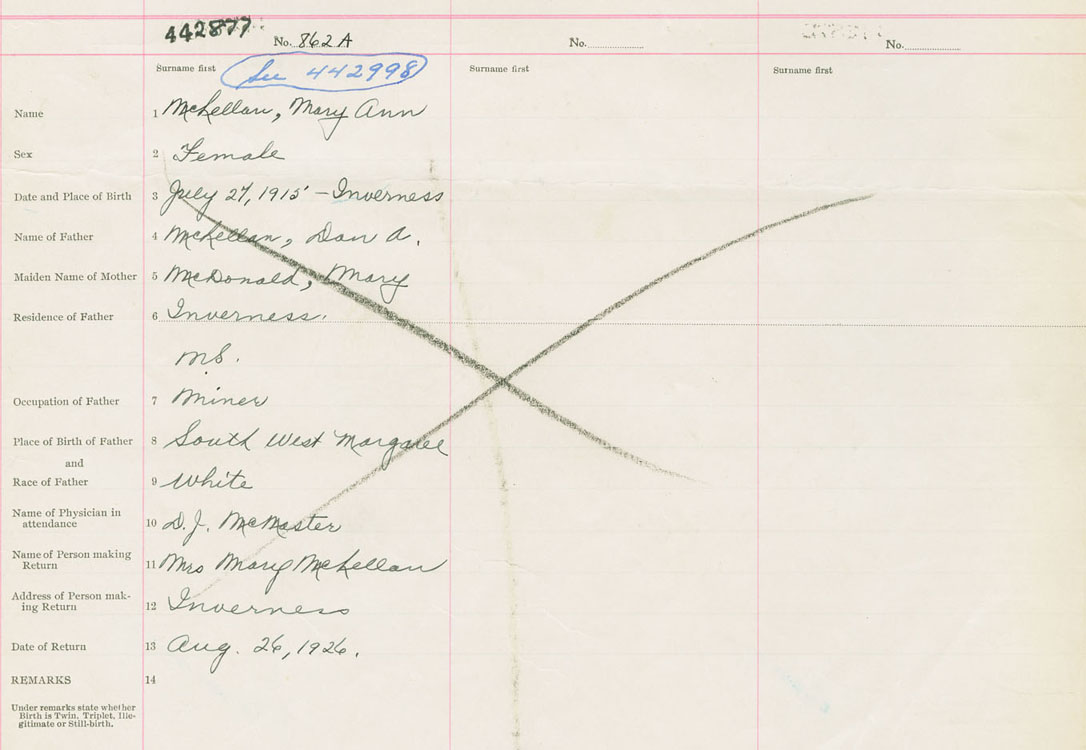 442877
No. 862 A No. No.
Surname first See 442998 Surname first Surname first
Name 1 McLellan, Mary Ann
Sex 2 Female
Date and Place of Birth 3 July 27, 1915 - Inverness
Name of Father 4 McLellan, Dan A.
Maiden Name of Mother 5 McDonald, Mary
Residence of Father 6 Inverness.
N.S.
Occupation of Father 7 Miner
Place of Birth of Father 8 South West Margaree
and
Race of Father 9 White
Name of Physician in
attendance 10 D. J. McMaster
Name of Person making
Return 11 Mrs Mary McLellan
Address of Person mak-
ing Return 12 Inverness
Date of Return 13 Aug. 26, 1926.
REMARKS 14
Under remarks state whether
Birth is Twin, Triplet, Ille-
gitimate or Still-birth.